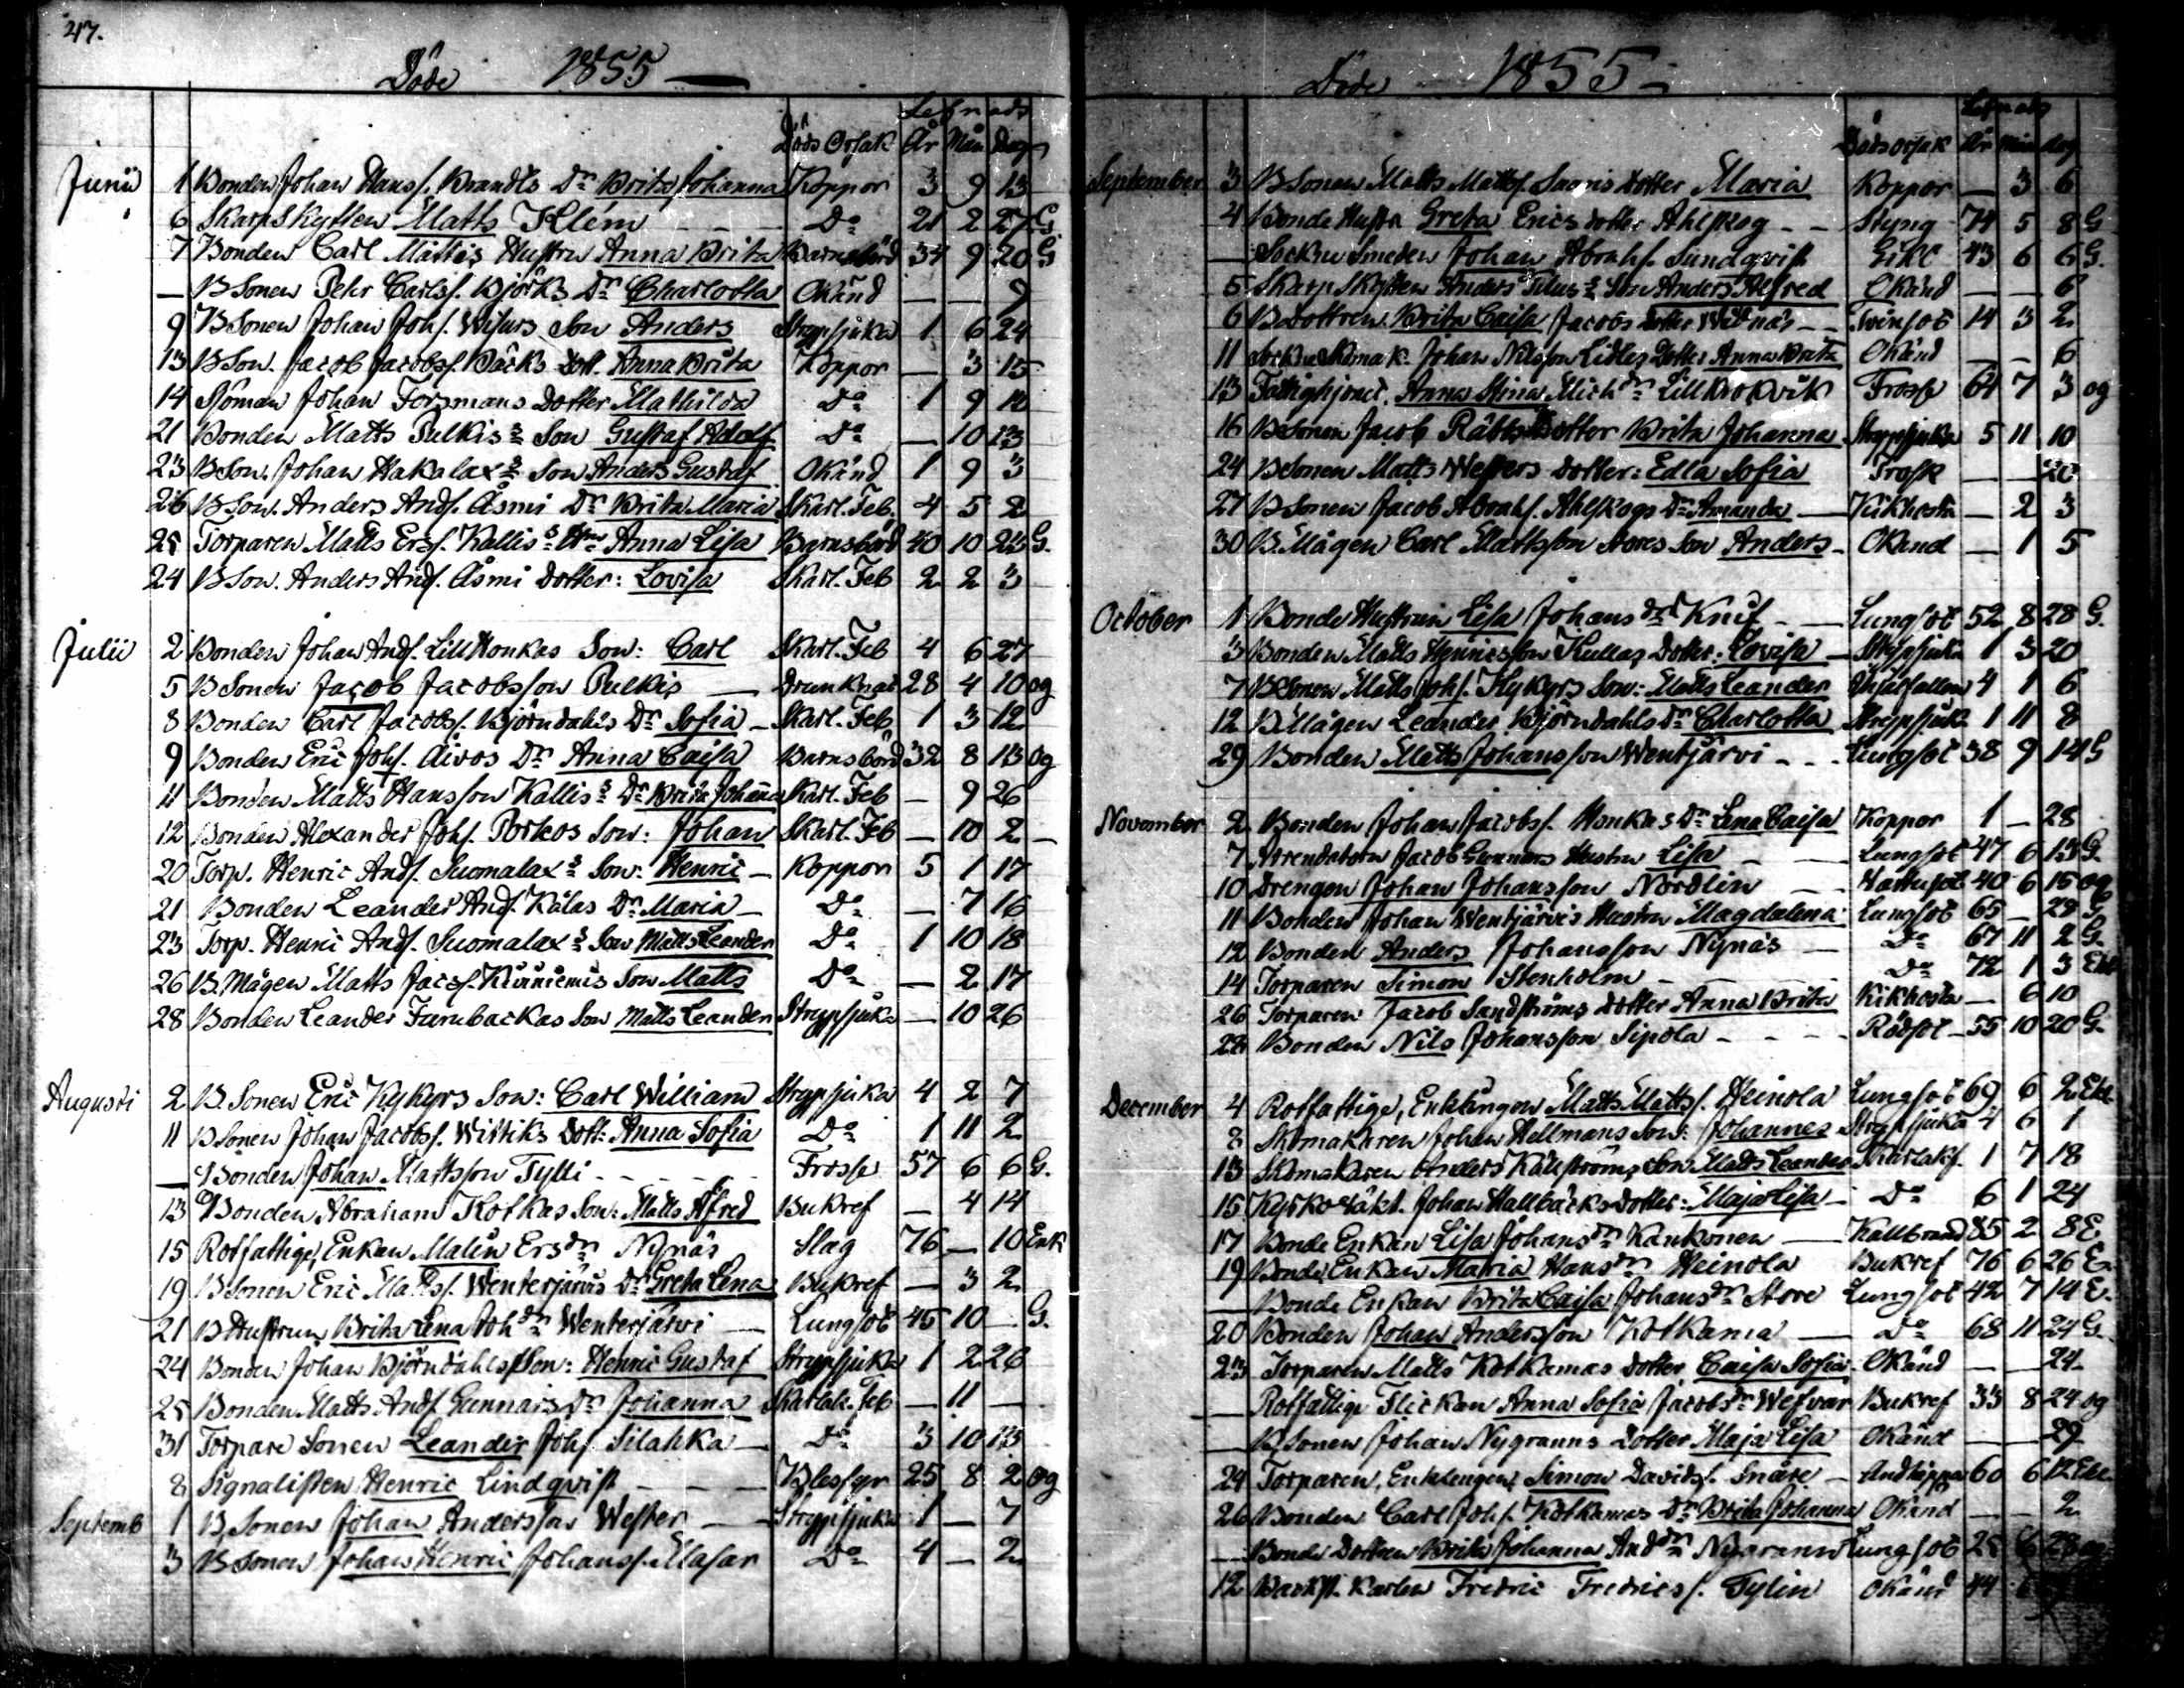 47.
Döde 1855
Lefnads
Döds Orsak År Mån Dag
Junii 1 Bonden Johan Hanss. Brandts Dr Brita Johanna Koppor 3 9 13
6 Skarpskytten Matts Klém Do 21 2 27 G.
7 Bonden Carl Mattis Hustru Anna Brita Barnsbörd 34 9 20 G
— BSonen Pehr Carlss. Björks Dr Charlotta Okänd — — 9
9 BSonen Johan Johs. Son Anders Strypsjuka 1 6 24
13 BSon. Jacob Jacobss. Bäcks Dott. Anna Brita Koppor — 3 15
14 Sjöman Johan Forsmans Dotter Mathilda Do 1 9
21 Bonden Matts Pulkis Son Gustaf Adolf Do — 10 13
23 BSon. Johan Hakalax Son Anders Gustaf Okänd 1 9 3
26 BSon. Anders Ands. Åsmi Dr Brita Maria Skarl. Feb. 4 5 2
25 Torparen Matts Erss. Kallis Hu Anna Lisa Barnsbörd 40 10 23 G.
24 BSon. Anders Ands. Åsmi Dotter: Lovisa Skarl. Feb 2 2 3
Julii 2 Bonden Johan Ands. Lill Honkas Son: Carl Skarl. Feb 4 6 27
5 BSonen Jacob Jacobsson Pulkis — Drunknat 28 4 10 og
8 Bonden Carl Jacobs. Björndahls Dr Sofia — Skarl. Feb 1 3 12
9 Bonden Eric Johs. Äivos Dr Anna Caisa Barnsbörd 32 8 13 og
11 Bonden Matts Hansson Kallis Dr Brita Johanna Skarl. Feb — 9 26
12 Bonden Alexander Johs. Porkos Son: Johan Skarl. Feb — 10 2 —
20 Torp. Henric Ands. Suomalax Son: Henric — Koppor 5 1 17
21 Bonden Leander Ands. Kälas Dr Maria — Do — 7 16
23 Torp. Henric Ands. Suomalax Son Matts Leander Do 1 10 18
26 B.Mågen Matts Jacs. Kinniemis Son Matts Do — 2 17
28 Bonden Leander Furubackas Son Matts Leander Strypsjuka — 10 26
Augusti 2 B.Sonen Eric Kykyrs Son: Carl William Strypsjuka 4 2 7
11 BSonen Johan Jacobss. Wittiks Dott: Anna Sofia Do 1 11 2
— Bonden Johan Mattsson Tylli Frossa 57 6 6 G.
13 Bonden Abraham Kotkas Son: Matts Alfred Bukref — 4 14
15 Rotfattige, Enkan Malin Ersdr Nynäs Slag 76 — 10 Enk
19 BSonen Eric Matss. Wenterjärvis Dr Greta Lena Bukref — 3 2
21 BHustrun Brita Lena Johdr Wenterjärvi — Lungsot 45 10 — G.
24 Bonden Johan Björndahls Son: Henric Gustaf Strypsjuka 1 2 26
25 Bonden Matts Ands. Gunnars Dr Johanna Skarlak. Feb — 11 —
31 Torpare Sonen Leander Johs. Silahka — Do 3 10 13
8 Signalisten Henric Lindqvist 25 8 2 og
Septemb 1 B.Sonen Johan Andersson Wester — Strypsjuka 1 — 7
3 BSonen Johan Henric Johanss. Masar Do 4 — 2
Döde 1855
Lefnads
Dödsorsak År Mån dag
September 3 BSonen Matts Matts. Saaris Dotter Maria Koppor — 3 6
4 Bonde Hustr Greta Erics dotter Ahlskog Styng 74 5 8 G
— Sockne Smeden Johan Abrahs. Sundqvist Gikt 43 6 6 G.
5 Skarpskytten Anders Son Anders Alfred Okänd — — 6
6 BDottren Brita Caisa Jacobs dotter Widnäs Tvinsot 14 3 2
11 Sockne Skomak. Johan Nilsson Lidles Dotter Anna Brita Okänd — — 6
13 Fattighjonet, Anna Stina Michdr Lill Krokvik Frossa 64 7 3 og
16 BSonen Jacob Rätts Dotter Brita Johanna Strypsjuka 5 11 10
24 BSonen Matts Westers Dotter: Edla Sofia Trosk — — 20
27 BSonen Jacob Abrahs. Ahlskogs Dr Amanda — Kikhosta — 2 3
30 B.Mågen Carl Mattsson Stores Son Anders — Okänd — 1 5
October 1 Bonde Hustrun Lisa Johansdr Knif — Lungsot 52 8 28 G.
3 Bonden Matts Henricsson Kullas Dotter: Lovisa — Strypsjuka 1 3 20
7 BSonen Matts Johs. Kykyrs Son: Matts Leander 4 1 6
12 B.Mågen Leander Björndahls Dr Charlotta Strypsjuk 1 11 8
29 Bonden Matts Johansson Wentjärvi Lungsot 38 9 14 G
November 2 Bonden Johan Jacobss. Honkas Dr Lena Caisa Koppor 1 — 28
7 Arrendatorn Jacob Gunnars Hustru Lisa — Lungsot 47 6 13 G.
10 Drengen Johan Johansson Nordlin — Wattusot 40 6 15 og
11 Bonden Johan Wentjärvis Hustru Magdalena Lungsot 65 — 29 G
12 Bonden Anders Johansson Nynäs — Do 67 11 2 G.
14 Torparen Simon Stenholm Do 72 1 3
26 Torparen Jacob Sandströms Dotter Anna Brita Kikhosta — 6 10
28 Bonden Nils Johansson Sipola Rödsot 55 10 20 G.
December 4 Rotfattige, Enklingen Matts Matts. Heinola Lungsot 69 6 2 Ekl
8 Skomakaren Johan Hellmans Son: Johannes Strypsjuka 4 6 1
13 Skomakaren Anders Källströms Son Matts Leander Skarlaksf. 1 7 18
15 Kyrkovakt. Johan Hallbäcks Dotter: Maja Lisa — Do 6 1 24
17 Bonde Enkan Lisa Johansdr Kankonen — Kallbrand 85 2 8 E
19 Bonde, Enkan Maria Hansdr Heinola Bukref 76 6 26 E.
— Bonde Enkan Brita Caisa Johansdr Store Lungsot 42 7 14 E.
20 Bonden Johan Andersson Kotkama — Do 68 11 24 G.
23 Torparen Matts Kotkamas Dotter Caisa Sofia Okänd — — 24
— Rotfattige Flickan Anna Sofia Jacobsdr Wefvar Bukref 33 8 24 og
— BSonen Johan Nygranns Dotter Maja Lisa Okänd — — 29
24 Torparen, Enklengen, Simon Davidss. Snåre — Andtäppa 60 6 12
26 Bonden Carl Johs. Kotkamas Dr Brita Johanna Okänd — — 2
— Bonde Dottren Brita Johanna Anddr Nygrann Lungsot 25 6 28 og
12 Karlen Fredric Fredricss. Tylin Okänd 44